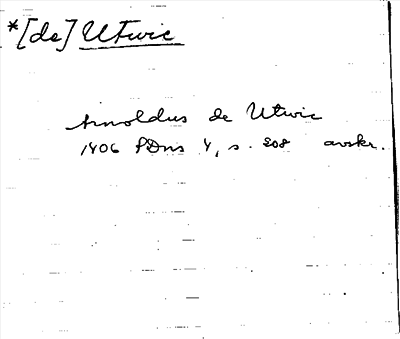 *[de] Utwic
Arnoldus de Utwic
1406 PDns 4, s. 208 avskr.